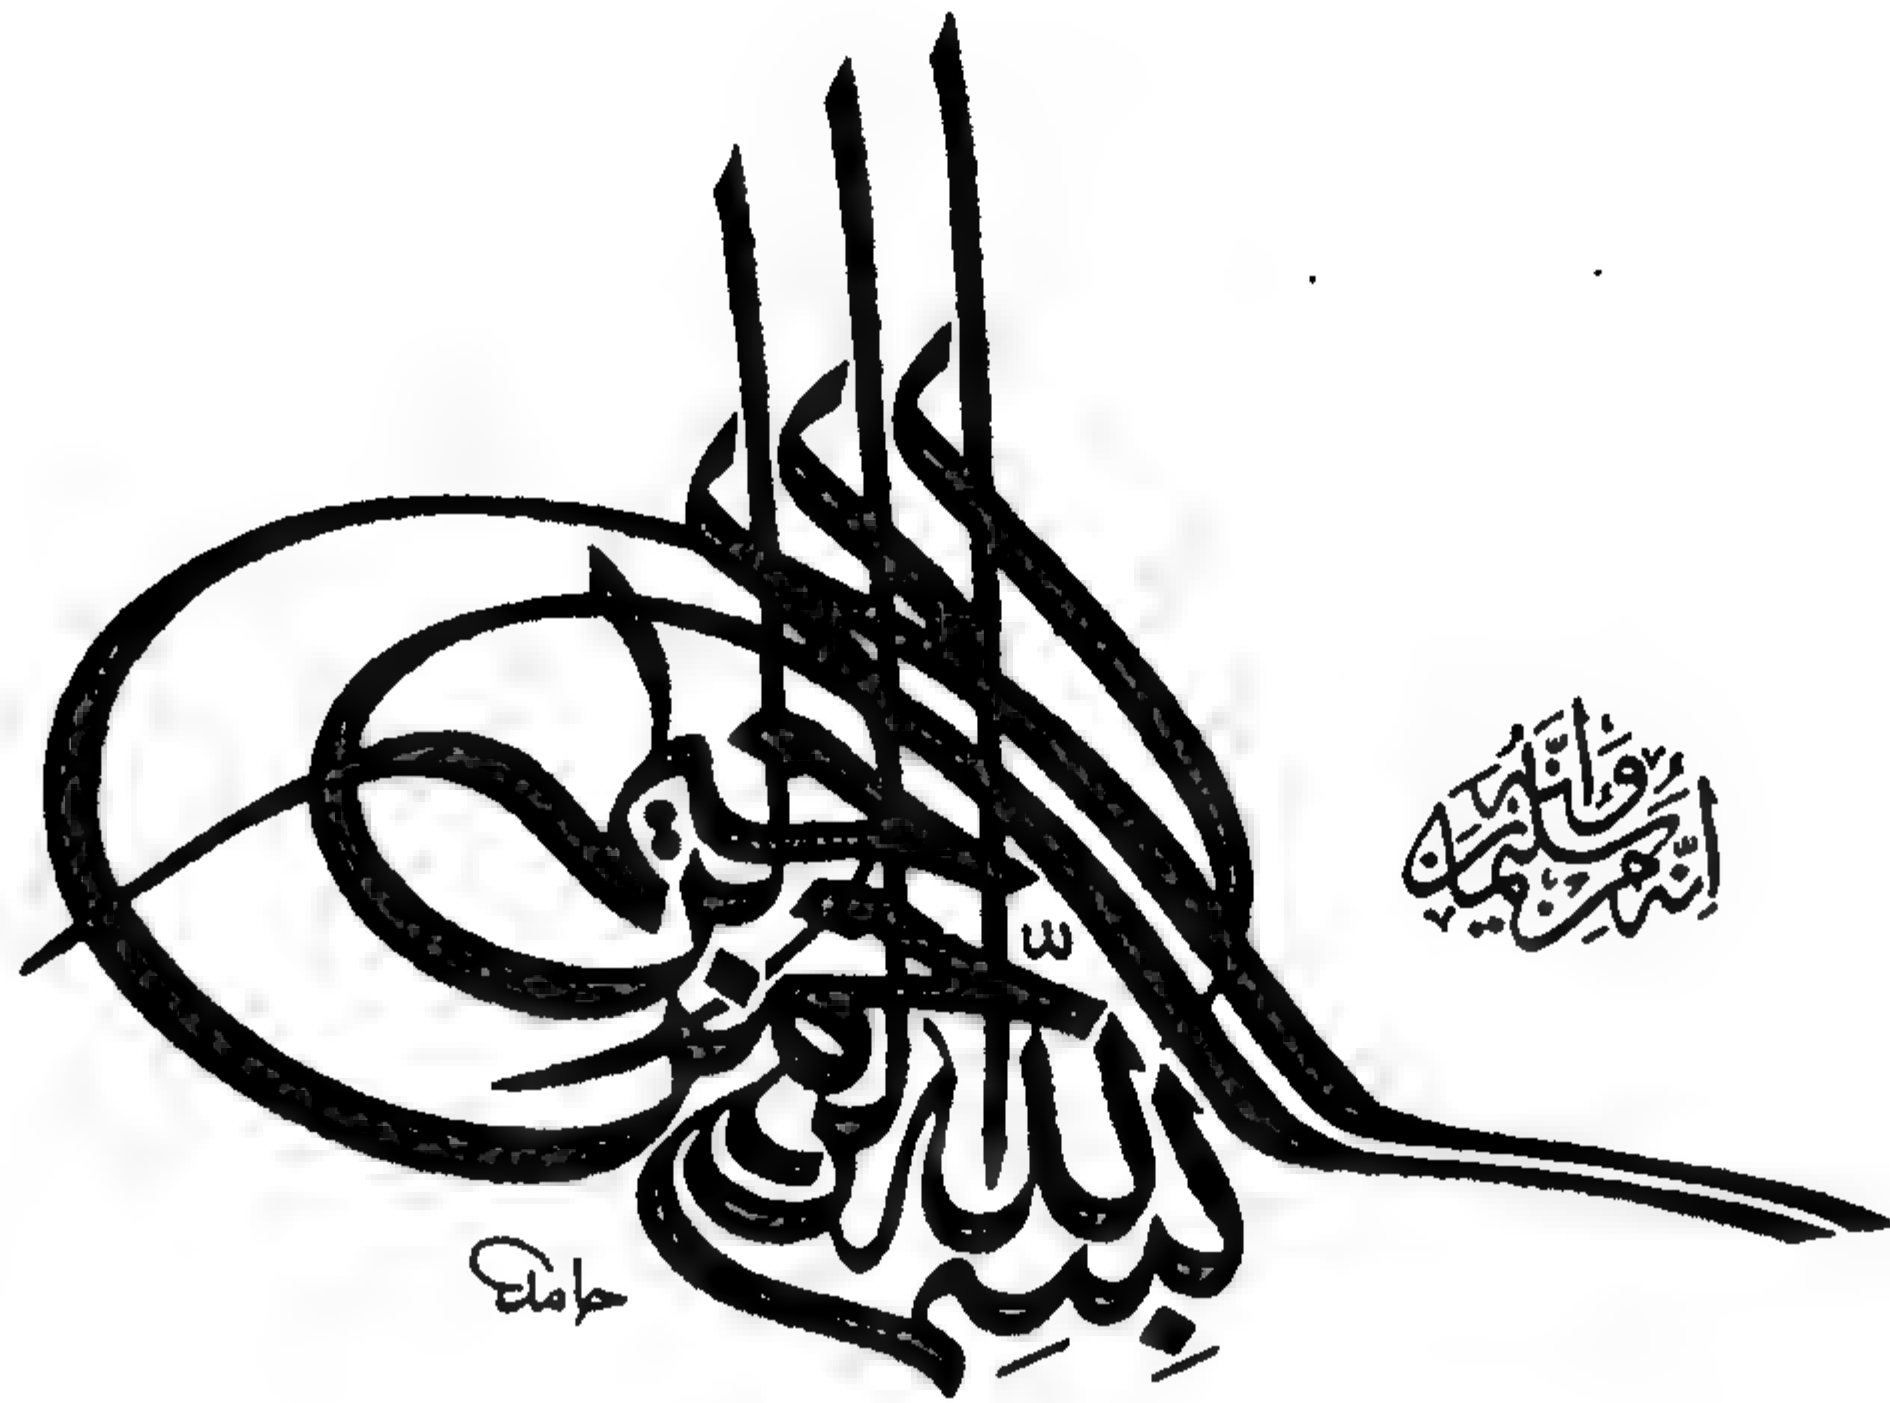 بسم الله الرحمن الرحيم
إنه من سليمن وإنه
حامد